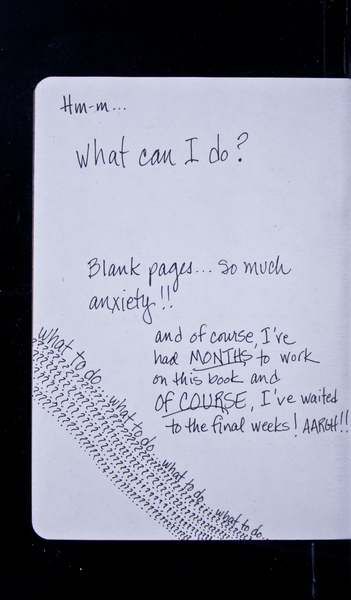 Hm-m...
What can I do?
Blank pages... so much
anxiety!!
and of course, I've
had MONTHS to work
on this book and
OF COURSE, I've waited
to the final weeks! AARGH!!
what to do...what to do...what to do...what to do...